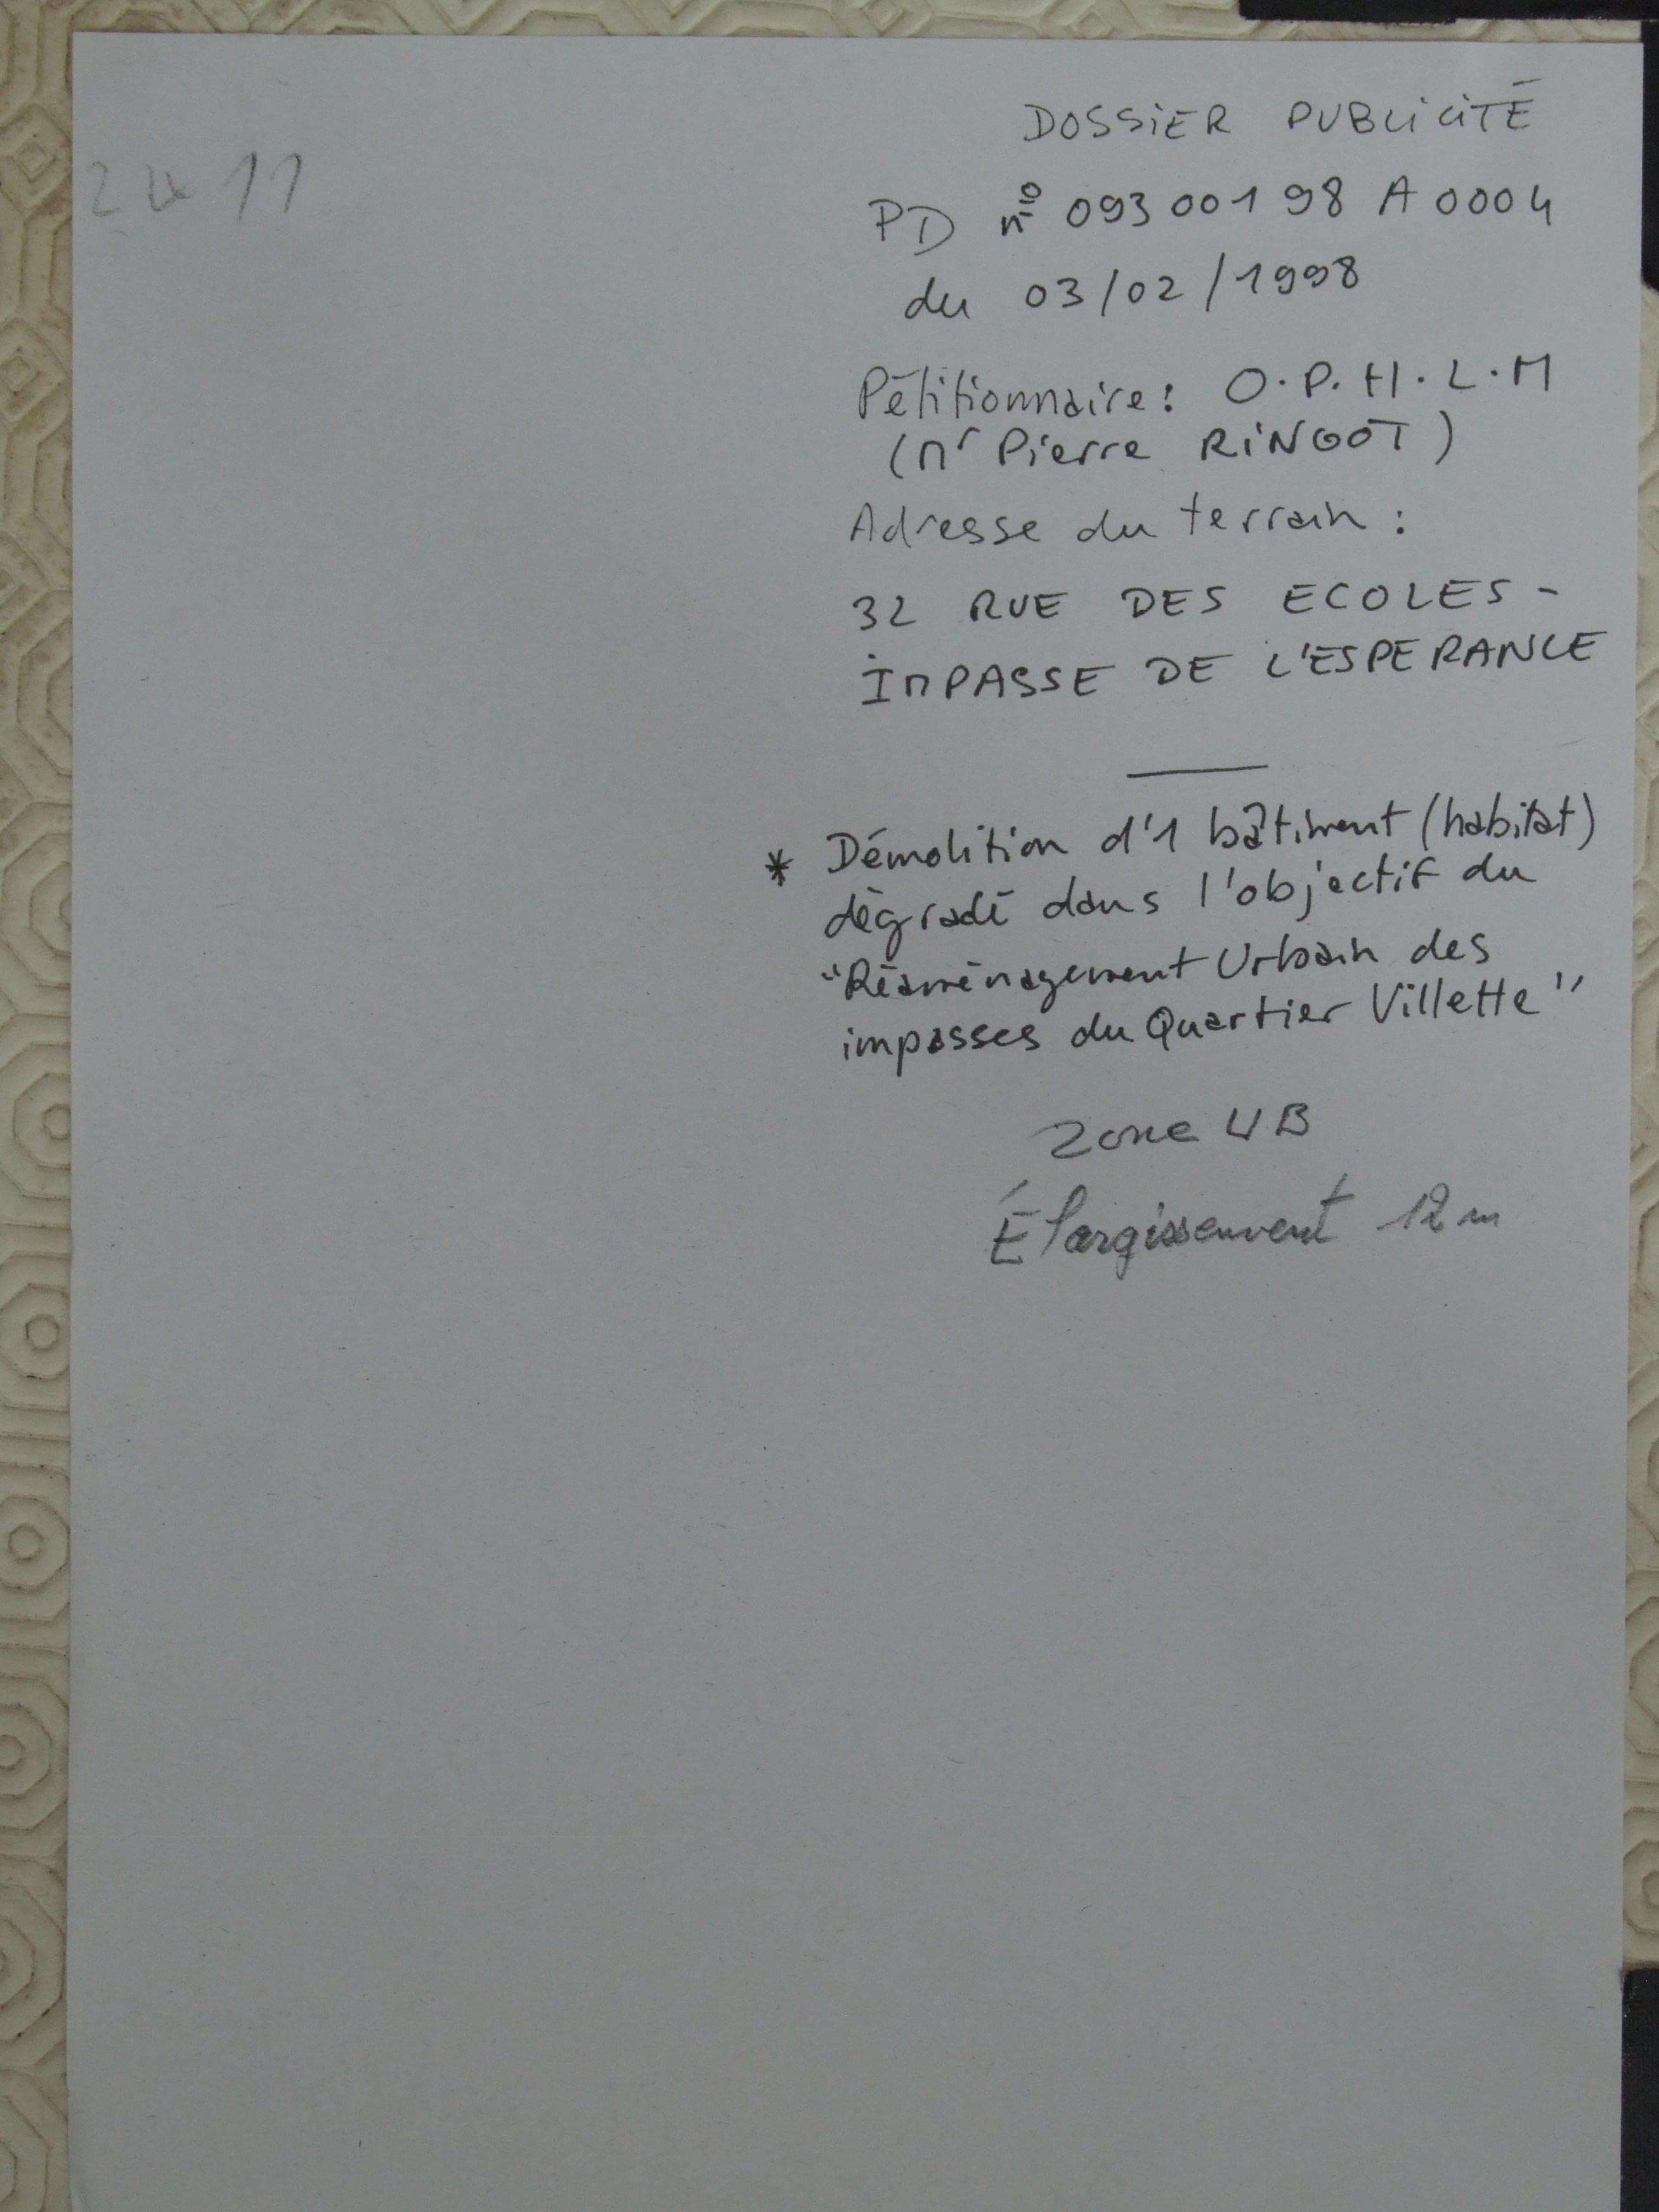 2411
DOSSIER PUBLICITÉ
PD n° 093 001 98 A 0004
du 03/02/1998
Pétitionnaire : O.P.H.L.M
(Mr Pierre RINGOT)
Adresse du terrain :
32 RUE DES ECOLES -
IMPASSE DE L'ESPERANCE
* Démolition d'1 bâtiment (habitat)
dégradé dans l'objectif du
"Réaménagement Urbain des
impasses du Quartier Villette"
Zone UB
Élargissement 12 m